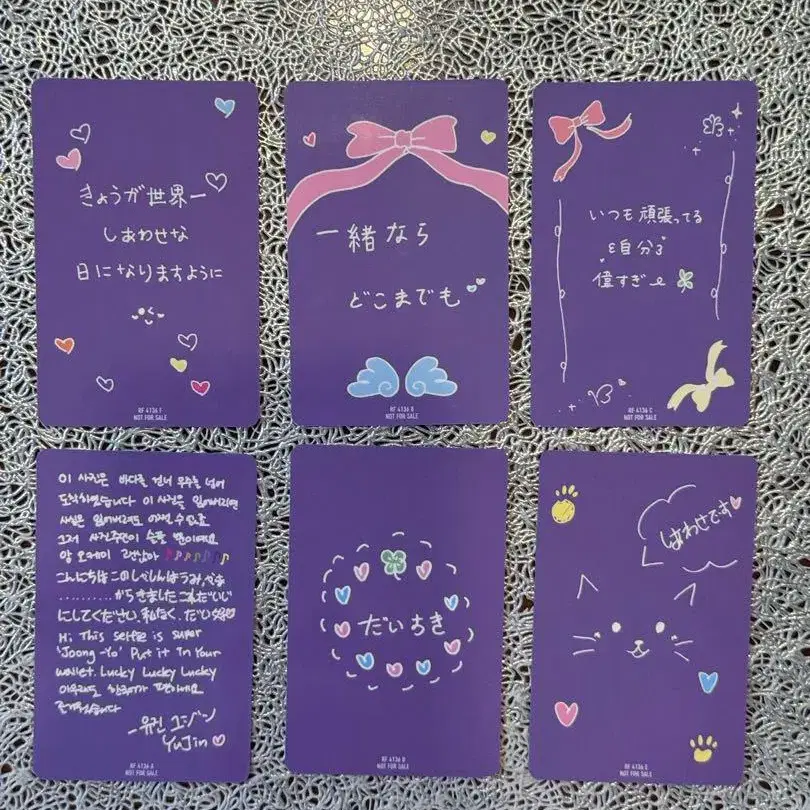 きょうが世界一
しあわせな
日になりますように
RF 4136 F
NOT FOR SALE
一緒なら
どこまでも
RF 4136 B
NOT FOR SALE
いつも頑張ってる
自分
偉すぎ
RF 4136 C
NOT FOR SALE
이 사진은 바다를 건너 우주를 넘어
도착하였습니다 이 사진을 잃어버리면
사실은 잃어버려도 어쩔 수 없죠
그저 사진주인이 슬플 뿐이에요
こんにちはこのしゃしんはうみ
からきました これだいじ
にしてください
Hi. This selfie is super
'Joong-Yo' Put it In Your
wallet. Lucky Lucky Lucky
아무래도
즐거웠습니다
-유진 ユジン
YuJin
RF 4136 A
NOT FOR SALE
だいちき
RF 4136 D
NOT FOR SALE
しあわせです
RF 4136 E
NOT FOR SALE